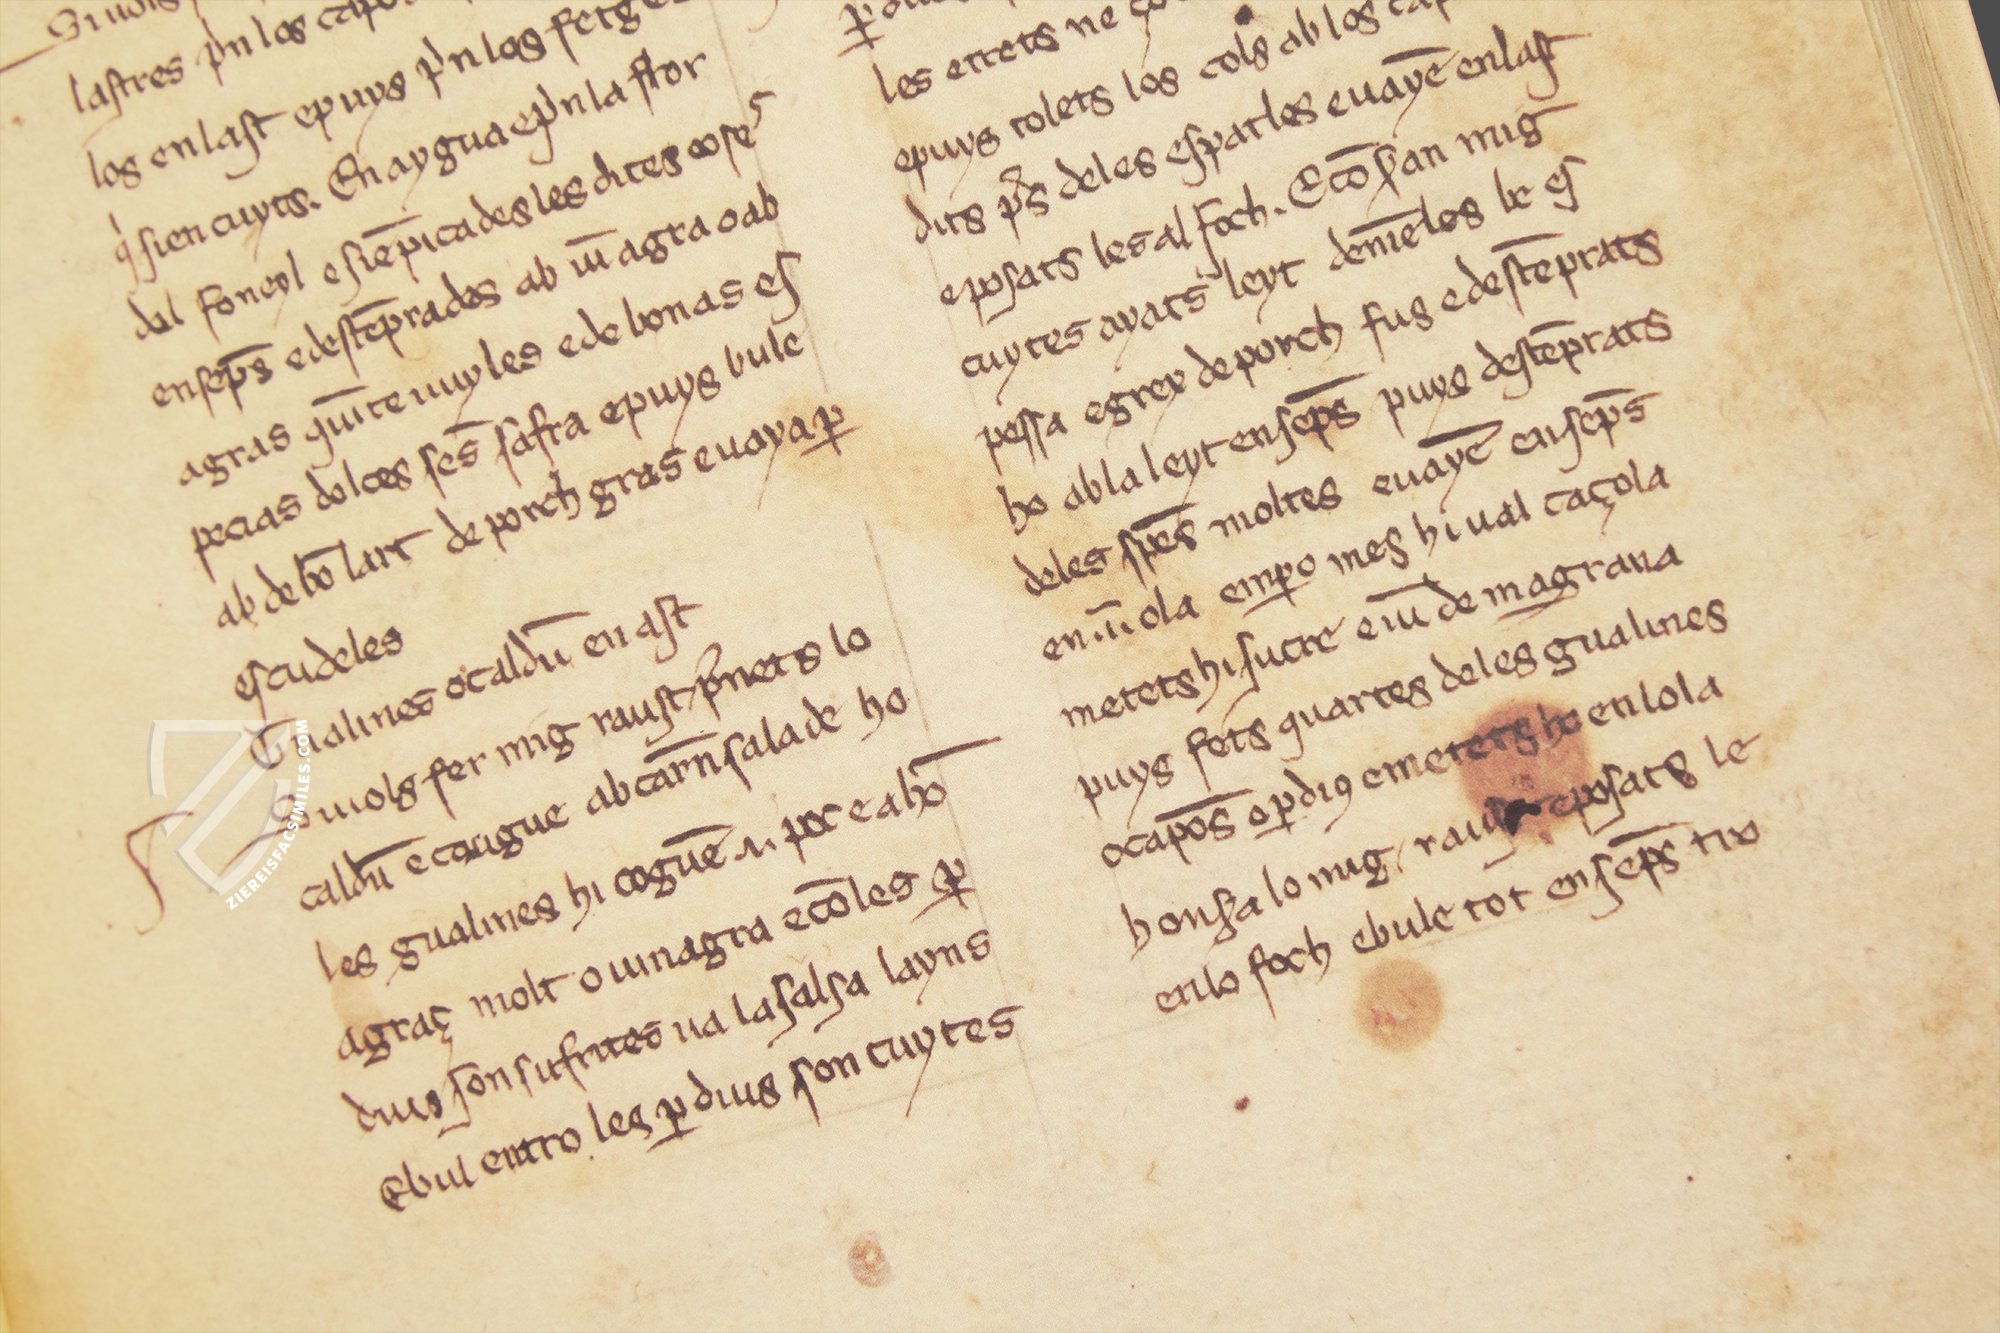 Si uols
lastres pṙn los capo
los en last e puys pṙn los fetges
q̇ sien cuyts. En aygua e pṙn la flor
del fonoyl e siē picades les dites cose
ensēps e destēprades ab uī agra o ab
agras qui te uuyles e de bonas es
pecias dolces ses̄ safra e puys bule
ab de bō lart de porch gras e uaya ꝑ
escudeles
Gualines o caldū en ast
Si uols fer mig raust pr̄nets lo
caldū e cougue ab carn̄ salade ho
les gualines hi coguē .ii. poc e a hō
agraç molt o uinagra e cō les ꝑ
dius son sufrites ua la salsa layns
E bul entro les ꝑdius son cuytes
les etrets ne
e puys tolets los cols ab los cap
dits pr̄s de les espatles e uayē en last
e posats les al foch. E cō sʼan miḡ
cuytes ayats leyt demētles br es
pessa e grex de porch fus e destēprats
ho ab la leyt ensēps puys destēprats
de les spēs moltes e uayē ensēps
en .ī. ola emꝑo mes hi ual caçola
metets hi sucre e uī de magrana
puys fets quartes de les gualines
o capōs o ꝑdiꝯ e metets ho en lola
hon sia lo mig raust e posats le
en lo foch e bule tot ensēps tro
ZIEREISFACSIMILES.COM